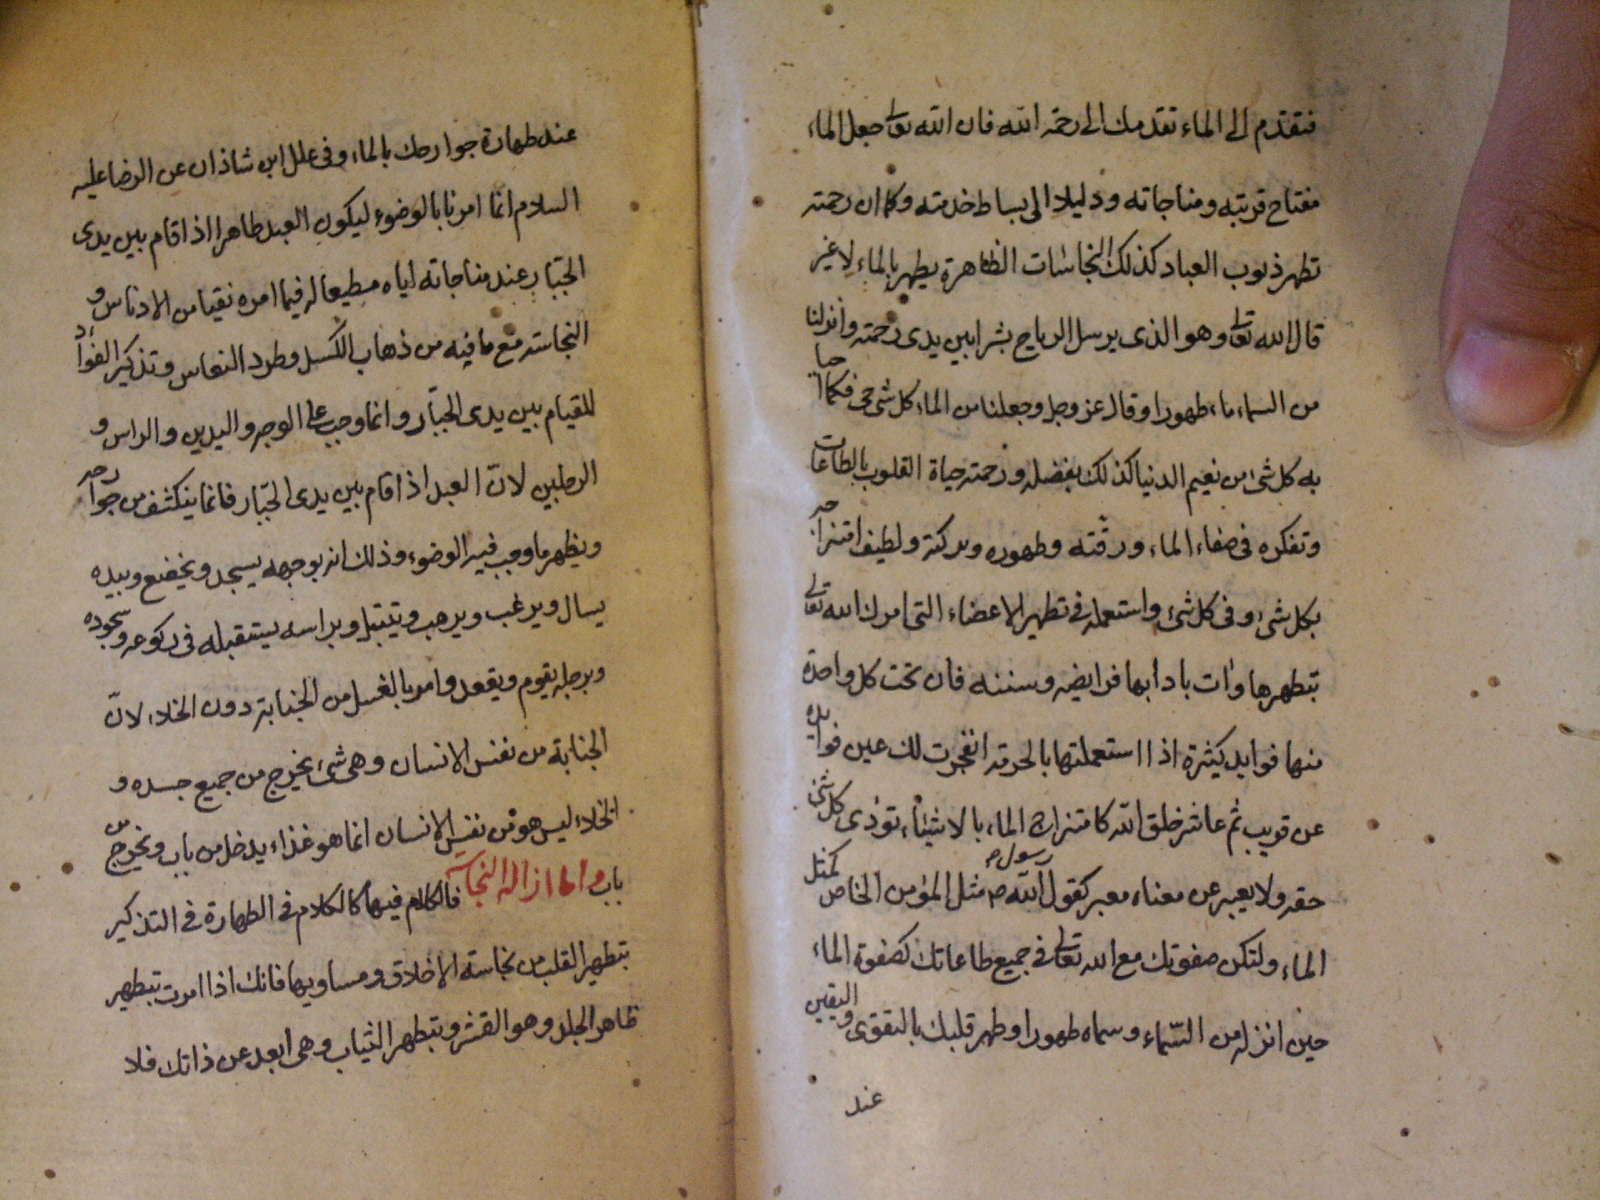 فتقدم الى الماء تقدمك الى رحمة الله فان الله تعالى جعل الماء
مفتاح قربته ومناجاته ودليلا الى بساط خدمته وكما ان رحمته
تطهر ذنوب العباد كذلك النجاسات الظاهرة يطهر بالماء لا غير
قال الله تعالى وهو الذى يرسل الرياح بشرا بين يدى رحمته وانزلنا
من السماء ماء طهورا وقال عز وجل وجعلنا من الماء كل شئ حى فكما احيا
به كل شئ من نعيم الدنيا كذلك بفضله ورحمته حياة القلوب بالطاعات
وتفكره فى صفاء الماء ورقته وطهوره وبركته ولطيف امتزاجه
بكل شئ وفى كل شئ واستعمله فى تطهير الاعضاء التى امرك الله تعالى
بتطهيرها وات بادابها فرايضه وسننه فان تحت كل واحدة
منها فوايد كثيرة اذا استعملتها بالحرمة انفجرت لك عين فوايده
عن قريب ثم عاشر خلق الله كامتزاج الماء بالاشياء تؤدى كل شئ
حقه ولا يعبر عن معناه معبر كقول رسول الله ص مثل المؤمن الخاص كمثل
الماء ولتكن صفوتك مع الله تعالى فى جميع طاعاتك كصفوة الماء
حين انزله من السماء وسماه طهورا وطهر قلبك بالتقوى واليقين
عند
عند طهارة جوارحك بالماء وفى علل ابن شاذان عن الرضا عليه
السلام انما امرنا بالوضوء ليكون العبد طاهرا اذا قام بين يدى
الجبار عند مناجاته اياه مطيعا له فيما امره نقيا من الادناس و
النجاسة مع ما فيه من ذهاب الكسل وطرد النعاس وتذكير الفؤاد
للقيام بين يدى الجبار وانما وجب على الوجه واليدين والراس و
الرجلين لان العبد اذا قام بين يدى الجبار فانما ينكشف من جوارحه
ويظهر ما وجب فيه الوضوء وذلك انه بوجهه يسجد ويخضع وبيده
يسال ويرغب ويرهب ويتبتل وبراسه يستقبله فى ركوعه وسجوده
وبرجله يقوم ويقعد وامر بالغسل من الجنابة دون الخلاء لان
الجنابة من نفس الانسان وهى شئ يخرج من جميع جسده و
الخلاء ليس هو من نفس الانسان انما هو غذاء يدخل من باب ويخرج من
باب واما ازالة النجاسة فالكلام فيها كالكلام فى الطهارة فى التذكير
بتطهير القلب من نجاسة الاخلاق ومساويها فانك اذا امرت بتطهير
ظاهر الجلد وهو القشر وبتطهر الثياب وهى ابعد عن ذاتك فلا